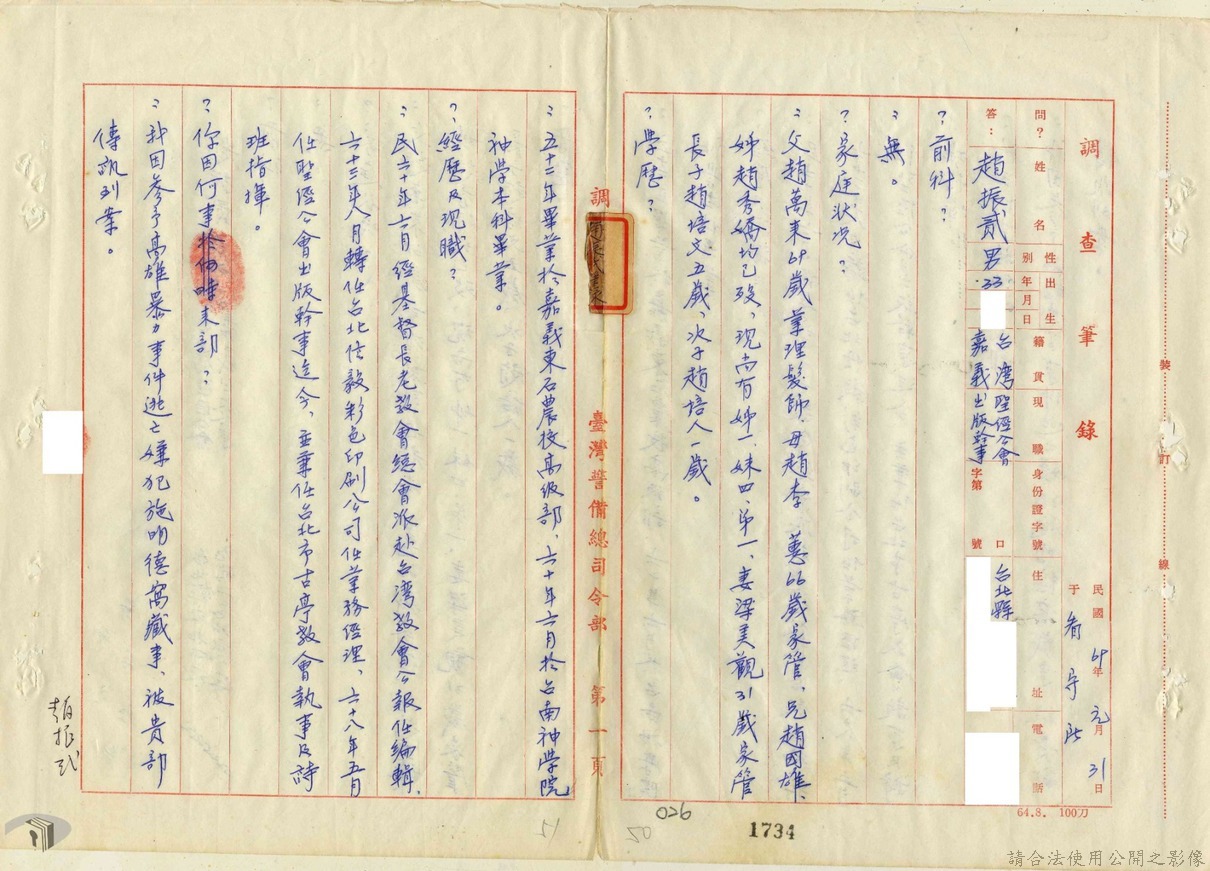 調查筆錄
民國69年元月31日
于看守所
問？
答：
姓名
性別
出生年月日
籍貫
現職
身份證字號
住址
電話
趙振貳
男
33.
台灣
嘉義
聖經公會
出版幹事
字第
號
口
台北縣
？前科？
：無。
？家庭狀況？
：父趙萬來69歲業理髮師、母趙李蕙66歲家管、兄趙國雄、
姊趙秀嬌均已歿，現尚有姊一、妹四、弟一、妻梁美觀31歲家管
長子趙培文五歲、次子趙培人一歲。
？學歷？
調
臺灣警備總司令部 第一頁
：五十二年畢業於嘉義東石農校高級部、六十年六月於台南神學院
神學本科畢業。
？經歷及現職？
：民六十年六月經基督長老教會總會派赴台灣教會公報任編輯、
六十三年八月轉任台北信毅彩色印刷公司任業務經理、六十八年五月
任聖經公會出版幹事迄今、並兼任台北市古亭教會執事及詩
班指揮。
？你因何事於何時來部？
：我因參予高雄暴力事件逃亡嫌犯施明德窩藏事、被貴部
傳訊到案。
趙振貳
裝
訂
線
64.8. 100刀
026
1734
50
51
請合法使用公開之影像